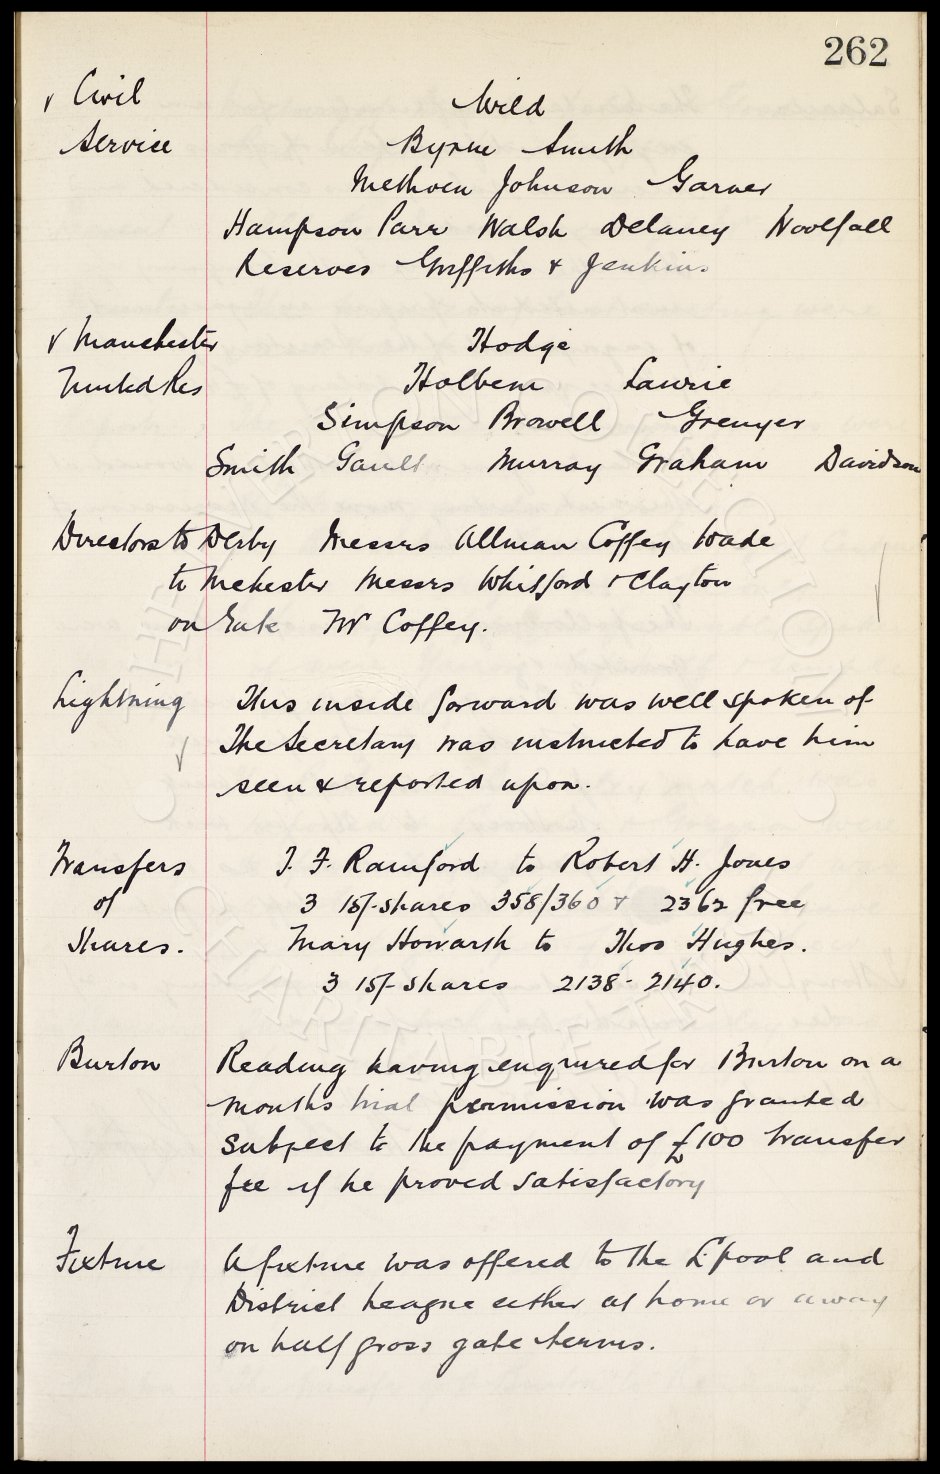 262
v Civil Wild
Service Byrne Smith
Methven Johnson Garner
Hampson Parr Walsh Delaney Woolfall
Reserves Griffiths & Jenkins
v Manchester Hodge
United Res Holbem Lawrie
Simpson Browell Grenyer
Smith Gault Murray Graham Davidson
Directors to Derby Messrs Allman Coffey Wade
to Mchester Messrs Whitford & Clayton
on Gate Mr Coffey.
Lightning This inside forward was well spoken of
The Secretary was instructed to have him
seen & reported upon.
Transfers T. F. Rainford to Robert H. Jones
of 3 15/- shares 358/360 & 2362 free
Shares. Mary Howarth to Thos Hughes.
3 15/- shares 2138 - 2140.
Burton Reading having enquired for Burton on a
months trial permission was granted
subject to the payment of £100 transfer
fee if he proved satisfactory
Fixture A fixture was offered to the L'pool and
District League either at home or away
on half gross gate terms.